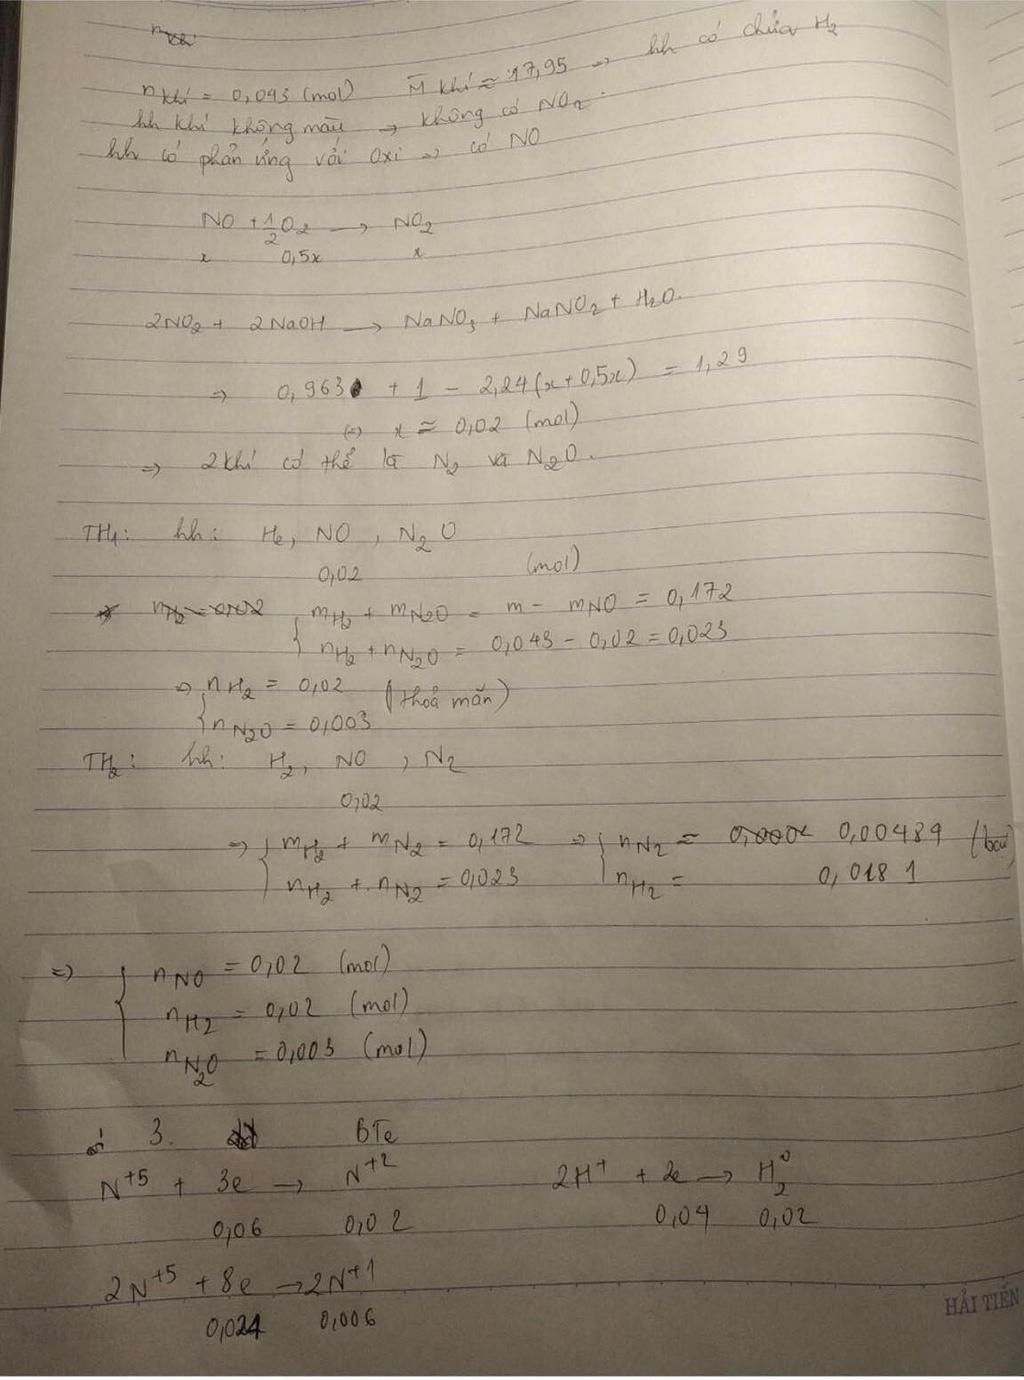 n khí = 0,043 (mol) M̅ khí ≈ 17,95 → hh có chứa H₂
hh khí không màu → không có NO₂.
hh có phản ứng với oxi ⇒ có NO
NO + 1/2 O₂ → NO₂
x 0,5x x
2NO₂ + 2NaOH → NaNO₃ + NaNO₂ + H₂O.
⇒ 0,963 + 1 - 2,24(x+0,5x) = 1,29
(=) x ≈ 0,02 (mol)
⇒ 2 khí có thể là N₂ và N₂O.
TH₁: hh: H₂, NO, N₂O
0,02 (mol)
{ mH₂ + mN₂O = m - mNO = 0,172
{ nH₂ + nN₂O = 0,043 - 0,02 = 0,023
⇒ { nH₂ = 0,02 (thoả mãn)
{ nN₂O = 0,003
TH₂: hh: H₂, NO, N₂
0,02
⇒ { mH₂ + mN₂ = 0,172 ⇒ { nN₂ = 0,00489
{ nH₂ + nN₂ = 0,023 { nH₂ = 0,0181
⇒ { nNO = 0,02 (mol)
{ nH₂ = 0,02 (mol)
{ nN₂O = 0,003 (mol)
3. BTe
N⁺⁵ + 3e → N⁺² 2H⁺ + 2e → H₂⁰
0,06 0,02 0,04 0,02
2N⁺⁵ + 8e → 2N⁺¹
0,024 0,006
HẢI TIẾN